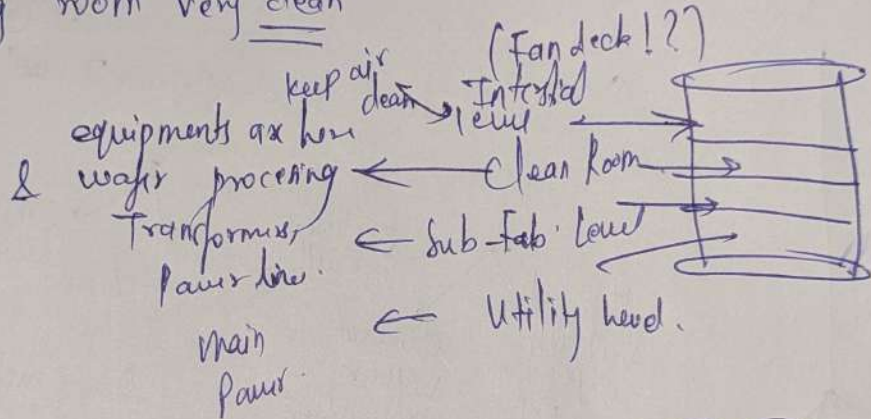 room very clean
(Fan deck!?)
keep air clean
Interstial level
equipments are here
& wafer processing
Clean Room
Transformers,
Power line.
Sub-Fab level
Utility level.
Main
Power.